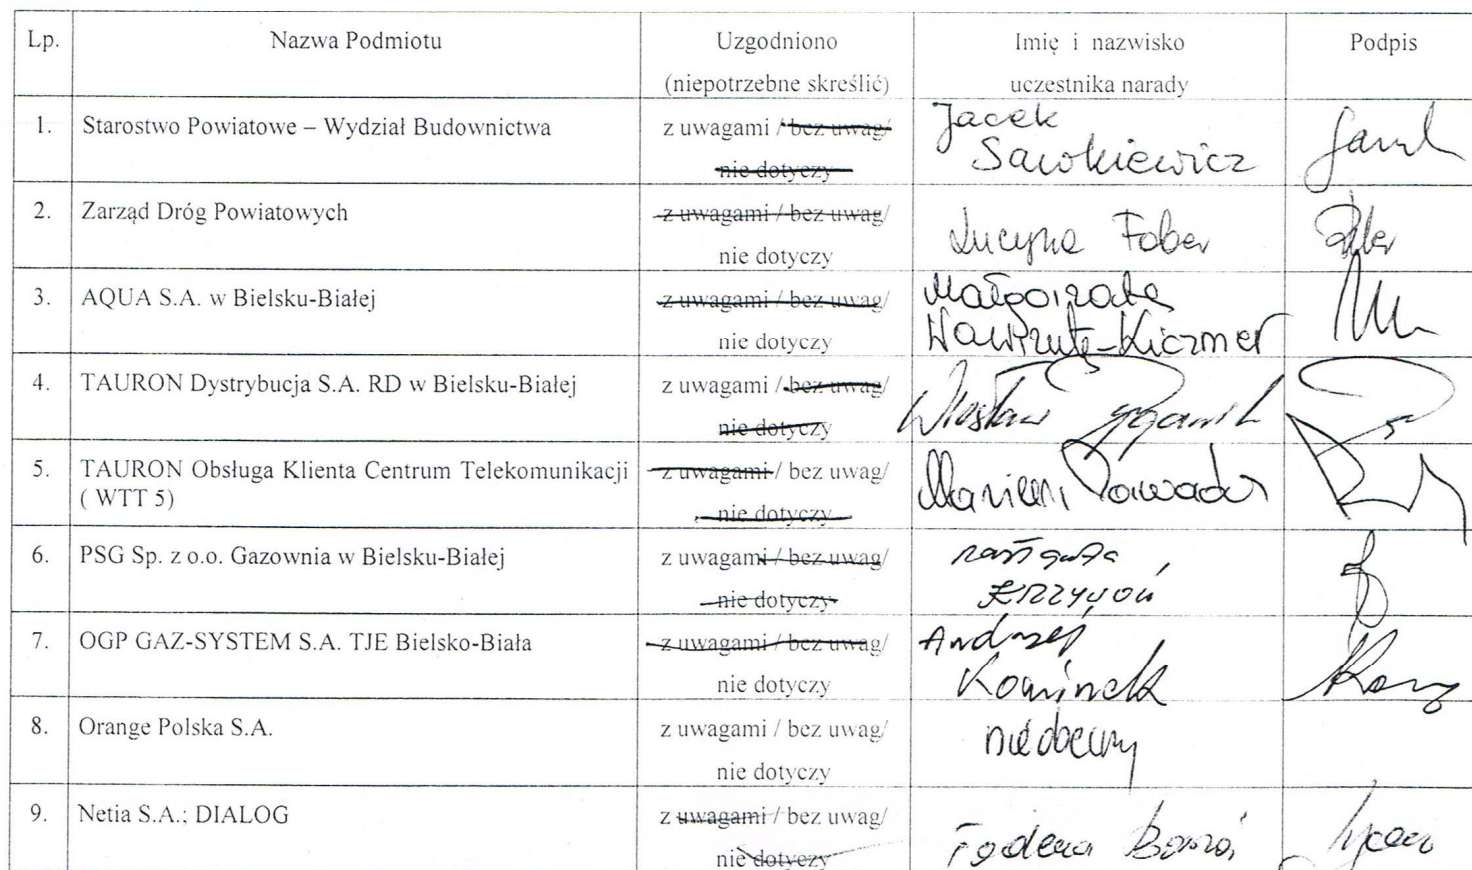 Lp. Nazwa Podmiotu Uzgodniono Imię i nazwisko Podpis
(niepotrzebne skreślić) uczestnika narady
1. Starostwo Powiatowe – Wydział Budownictwa z uwagami / bez uwag/ Jacek
nie dotyczy Sawkiewicz
2. Zarząd Dróg Powiatowych z uwagami / bez uwag/
nie dotyczy Lucyna Faber
3. AQUA S.A. w Bielsku-Białej z uwagami / bez uwag/ Małgorzata
nie dotyczy
4. TAURON Dystrybucja S.A. RD w Bielsku-Białej z uwagami / bez uwag/
nie dotyczy Wiesław
5. TAURON Obsługa Klienta Centrum Telekomunikacji z uwagami / bez uwag/
( WTT 5) nie dotyczy
6. PSG Sp. z o.o. Gazownia w Bielsku-Białej z uwagami / bez uwag/
nie dotyczy
7. OGP GAZ-SYSTEM S.A. TJE Bielsko-Biała z uwagami / bez uwag/ Andrzej
nie dotyczy Kominek
8. Orange Polska S.A. z uwagami / bez uwag/ nieobecny
nie dotyczy
9. Netia S.A.; DIALOG z uwagami / bez uwag/
nie dotyczy